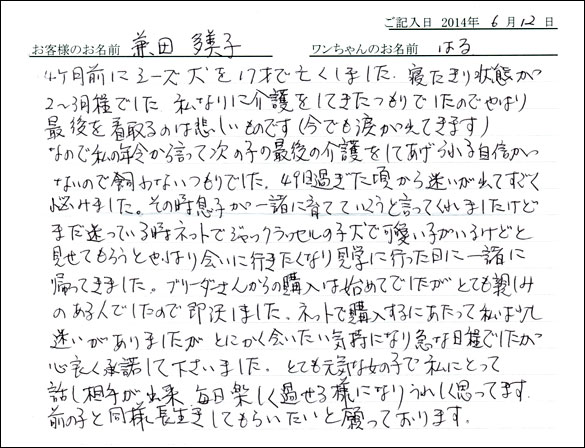 ご記入日 2014年 6月12日
お客様のお名前 兼田 多美子 ワンちゃんのお名前 はる
4ヶ月前にシーズ犬を17才で亡くしました。寝たきり状態が
2〜3月程でした 私なりに介護をしてきたつもりでしたのでやはり
最後を看取るのは悲しいものです(今でも涙が出てきます)
なので私の年令から言って次の子の最後の介護をしてあげられる自信が
ないので飼わないつもりでした。49日過ぎた頃から迷いが出てすごく
悩けました。その時息子が一諸に育てていこうと言ってくれましたけど
まだ迷っている時ネットでジャックラッセルの子犬で可愛い子がいるけどと
見せてもらうとやはり会いに行きたくなり見学に行った日に一諸に
帰ってきました。ブリーダさんからの購入は始めてでしたがとても親しみ
のある人でしたので即決しました。ネットで購入するにあたって私は少し
迷いがありましたが とにかく会いたい気持になり急な日程でしたが
心良く承諾して下さいました。とても元気な女の子で私にとって
話し相手が出来 毎日楽しく過せる様になりうれしく思ってます。
前の子と同様長生きしてもらいたいと願っております。